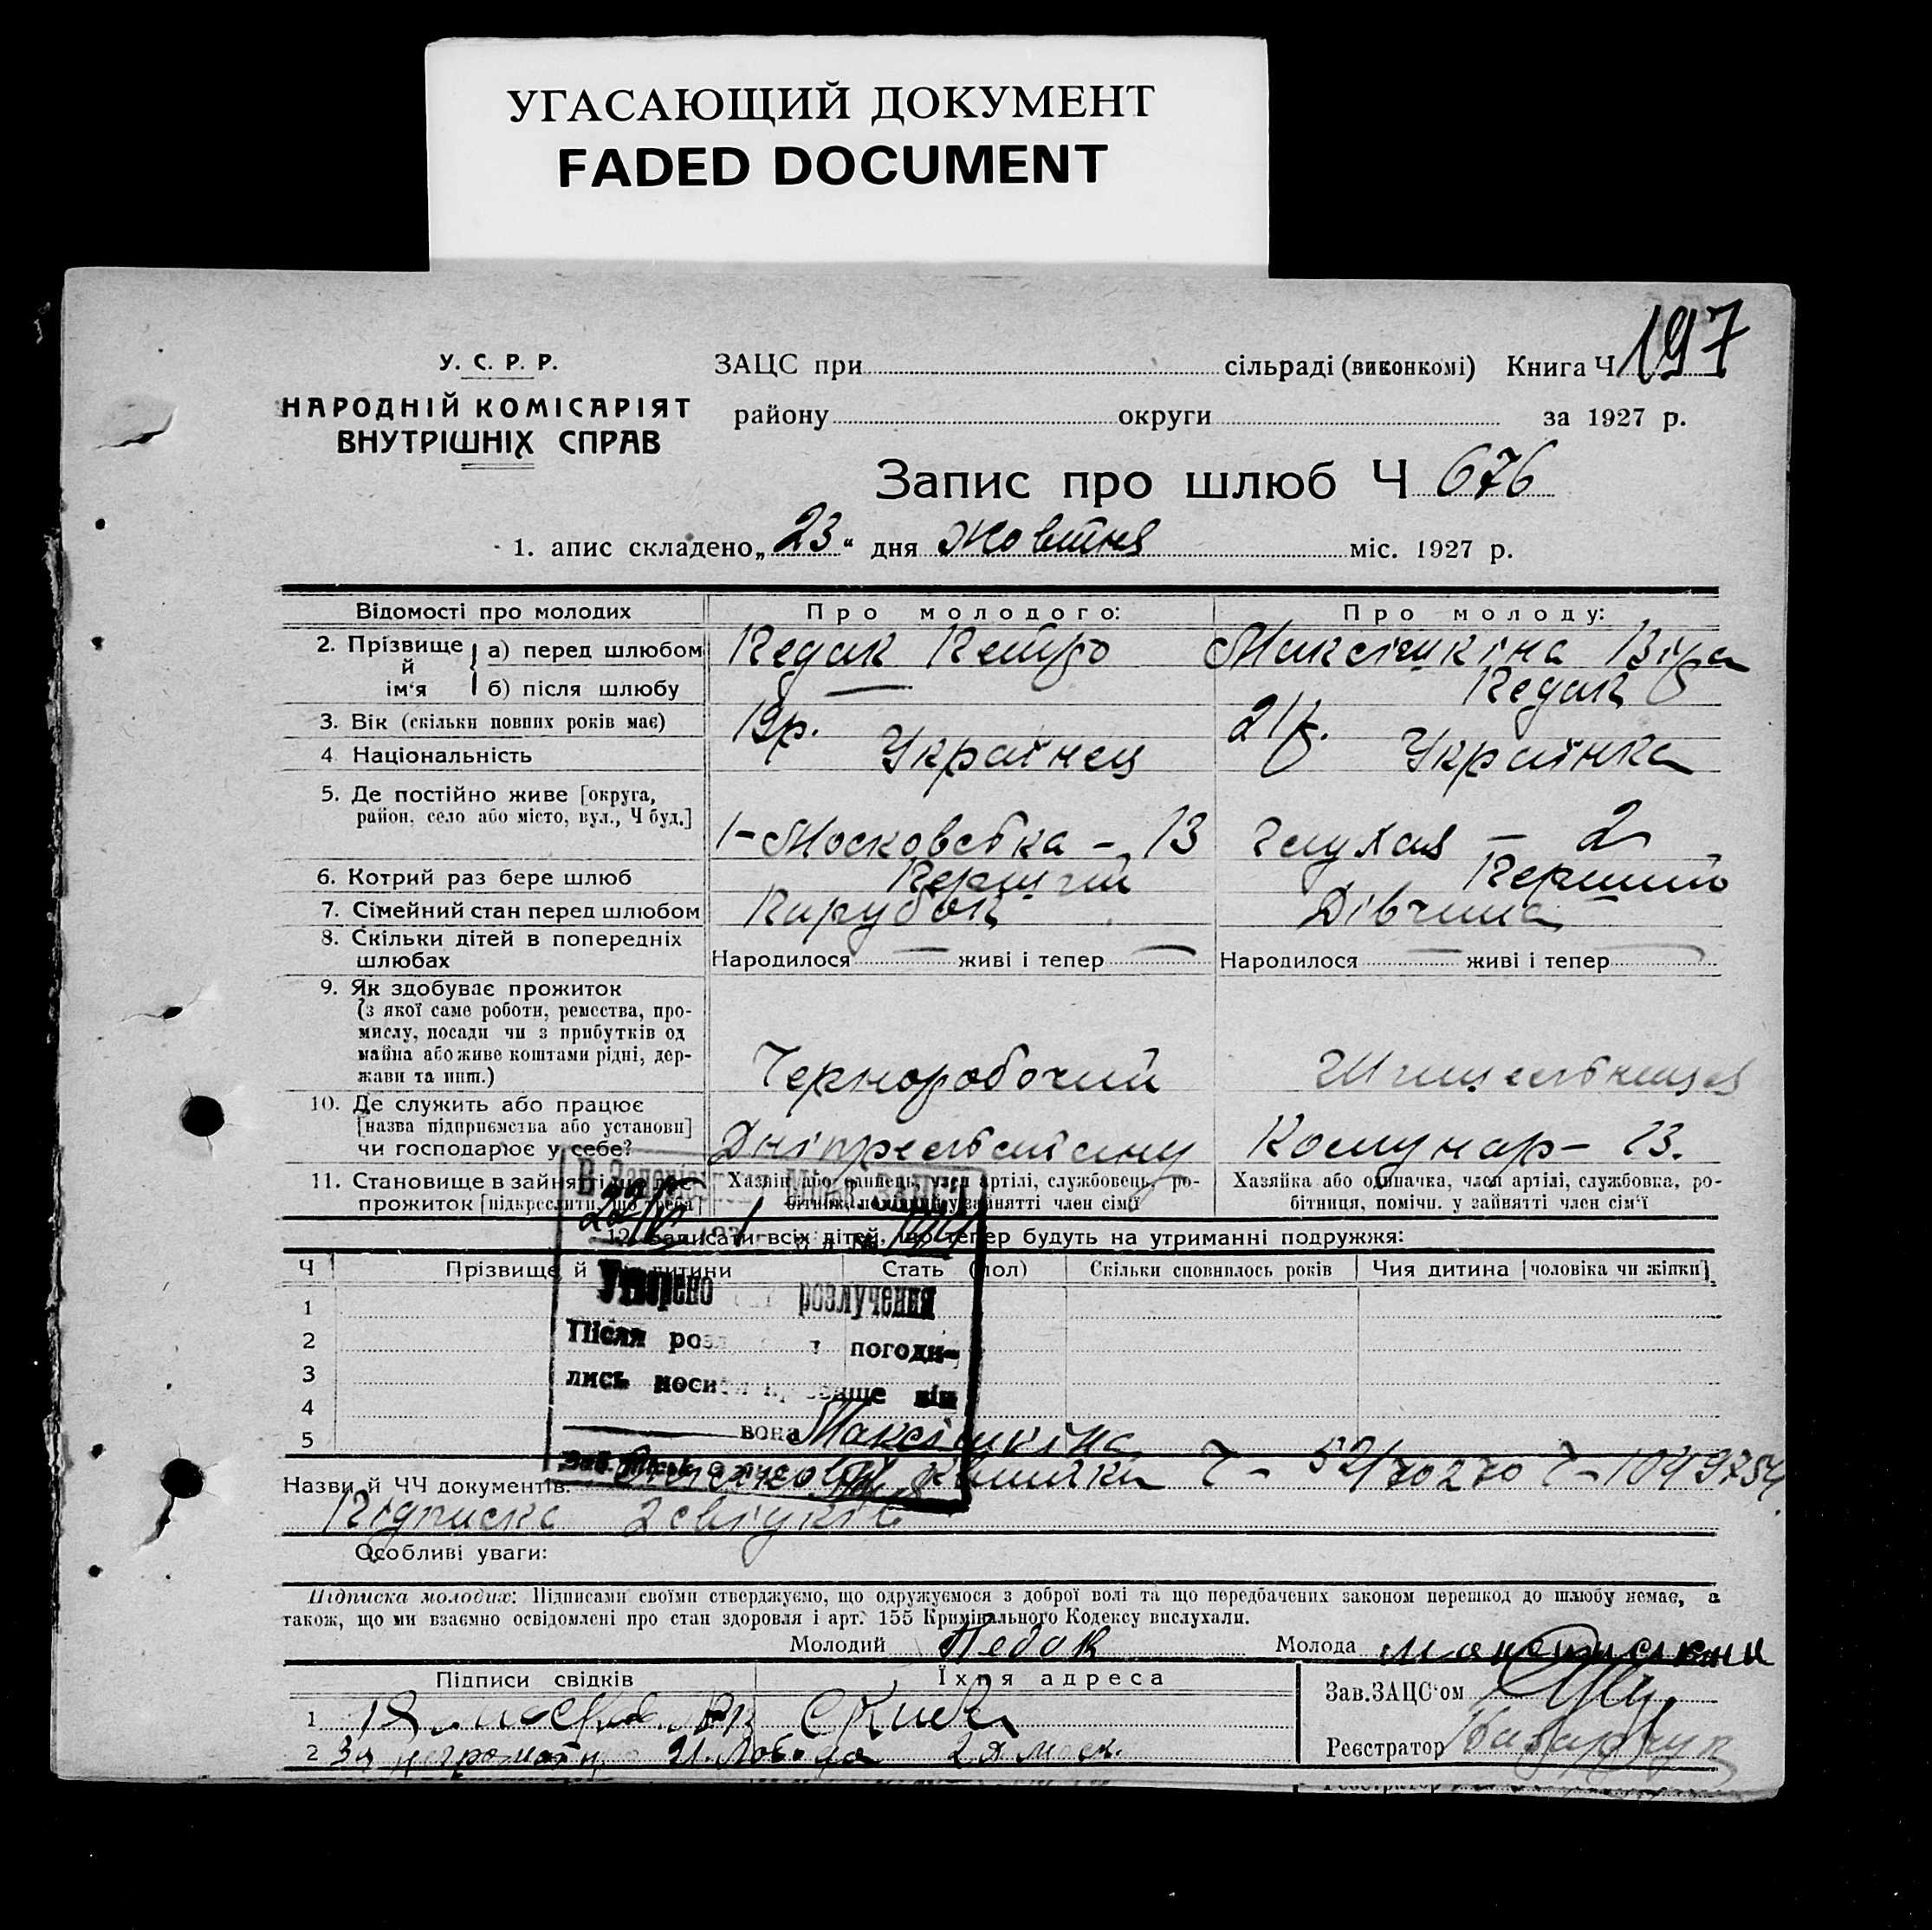 УГАСАЮЩИЙ ДОКУМЕНТ
FADED DOCUMENT
197
У. С. Р. Р.
НАРОДНІЙ КОМІСАРІЯТ
ВНУТРІШНІХ СПРАВ
ЗАЦС при сільраді (виконкомі) Книга Ч
району округи за 1927 р.
Запис про шлюб Ч 676
1. апис складено „23“ дня Жовтня міс. 1927 р.
Відомості про молодих Про молодого: Про молоду:
2. Прізвище й ім‘я а) перед шлюбом Педак Петро Максішкіна Віра
б) після шлюбу — Педак
3. Вік (скільки повних років має) 19р. 21р.
4 Національність Українец Українка
5. Де постійно живе [округа,
район, село або місто, вул., Ч буд.] 1-Московська - 13 Глухая — 2
6. Котрий раз бере шлюб Перший Перший
7. Сімейний стан перед шлюбом Парубок Дівчина
8. Скільки дітей в попередніх
шлюбах Народилося — живі і тепер — Народилося — живі і тепер —
9. Як здобуває прожиток
(з якої саме роботи, ремества, про-
мислу, посади чи з прибутків од
майна або живе коштами рідні, дер-
жави та инш.) Черноробочий
10. Де служить або працює
[назва підприємства або установи]
чи господарює у себе? Комунар - 13.
11. Становище в зайнятті що дає
прожиток [підкреслити, що треба] Хазяїн або одинець, член артілі, службовець, ро-
бітник, помічн. у зайнятті член сім‘ї
Хазяйка або одиначка, член артілі, службовка, ро-
бітниця, помічн. у зайнятті член сім‘ї
12. Записати всіх дітей, що тепер будуть на утриманні подружжя:
Ч Прізвище й дитини Стать (пол) Скільки сповнилось років Чия дитина [чоловіка чи жінки]
1
2
3
4
5
розлучення
Після погоди-
лись носити прізвище він
вона Максішкіна
Назви й ЧЧ документів: книжки
Підписка 2 свідків
Особливі уваги:
Підписка молодих: Підписами своїми стверджуємо, що одружуємося з доброї волі та що передбачених законом перешкод до шлюбу немає, а
також, що ми взаємно освідомлені про стан здоровля і арт. 155 Кримінального Кодексу вислухали.
Молодий Педак Молода
Підписи свідків Їхня адреса
Зав.ЗАЦС‘ом
1
2 За 2я моск.
Реєстратор